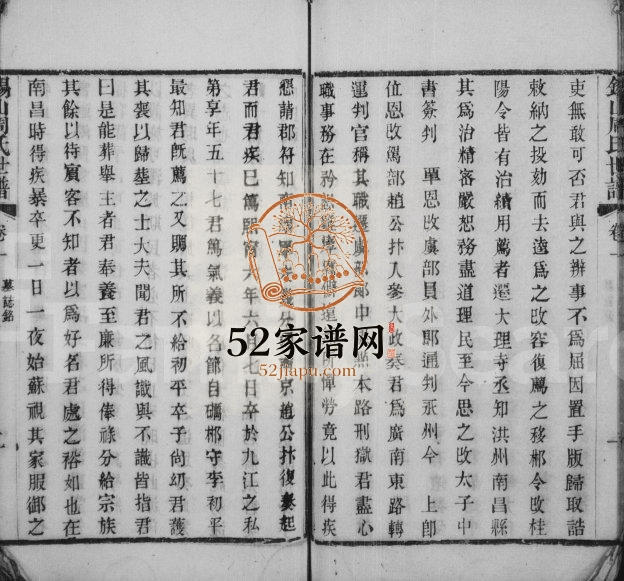 吏無敢可否君與之辨事不爲屈因置手版歸取誥
敕納之投劾而去逵爲之改容復薦之移郴令改桂
陽令皆有治績用薦者遷大理寺丞知洪州南昌縣
其爲治精密嚴恕務盡道理民至今思之改太子中
書簽判 覃恩改虞部員外郎通判永州今 上卽
位恩改駕部趙公抃入參大政奏君爲廣南東路轉
運判官稱其職遷虞部郎中 點本路刑獄君盡心
職事務在矜恕 勞竟以此得疾
懇請郡符知南 京趙公抃復奏起
君而君疾已篤熙寧六年六 七日卒於九江之私
第享年五十七君篤氣義以名節自礪郴守李初平
最知君旣薦之又賙其所不給初平卒子尙幼君護
其喪以歸葬之士大夫聞君之風識與不識皆指君
曰是能葬舉主者君奉養至廉所得俸祿分給宗族
其餘以待賓客不知者以爲好名君處之裕如也在
南昌時得疾暴卒更一日一夜始蘇視其家服御之
錫山周氏世譜
卷一
墓誌銘
錫山周氏世譜
卷一
52家谱网
52jiapu.com